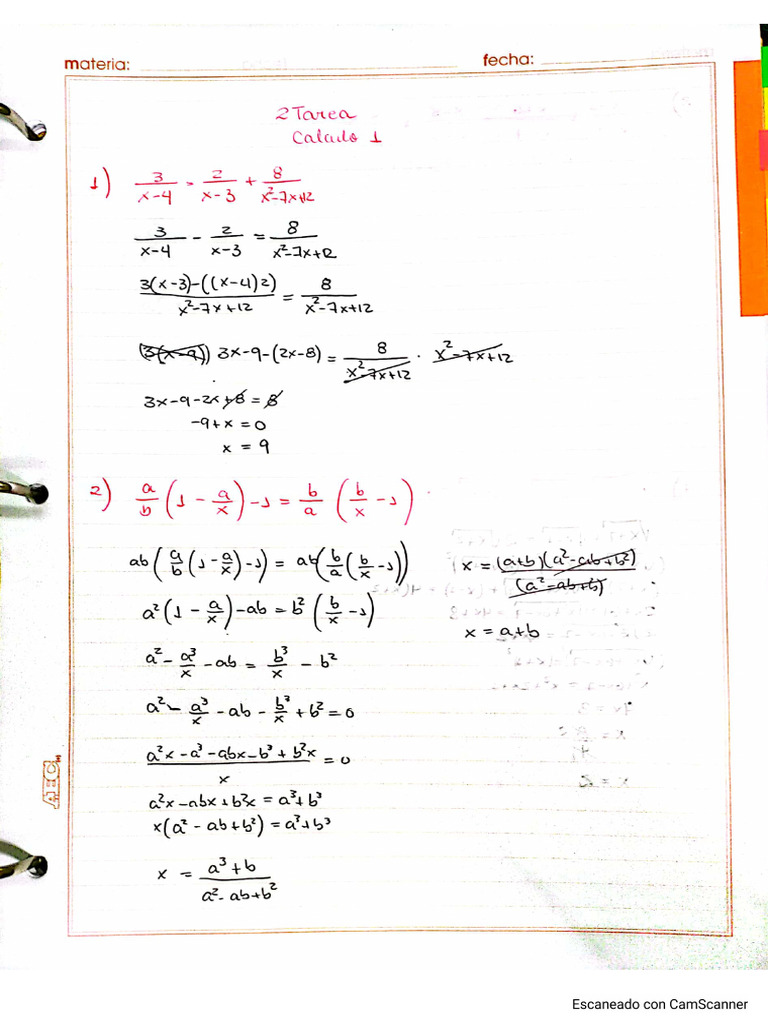 materia:
fecha:
2 Tarea
Calculo 1
1) 3/(x-4) = 2/(x-3) + 8/(x²-7x+12)
3/(x-4) - 2/(x-3) = 8/(x²-7x+12)
(3(x-3)-((x-4)2))/(x²-7x+12) = 8/(x²-7x+12)
3x-9-(2x-8) = 8/(x²-7x+12) · x²-7x+12
3x-9-2x+8 = 8
-9+x = 0
x = 9
2) a/b (1 - a/x) - 1 = b/a (b/x - 1)
ab(a/b(1-a/x)-1) = ab(b/a(b/x-1))
a²(1 - a/x) - ab = b²(b/x - 1)
a² - a³/x - ab = b³/x - b²
a² - a³/x - ab - b³/x + b² = 0
(a²x - a³ - abx - b³ + b²x)/x = 0
a²x - abx + b²x = a³+b³
x(a² - ab + b²) = a³+b³
x = (a³+b)/(a²-ab+b²)
x = (a+b)(a²-ab+b²)/(a²-ab+b)
x = a+b
Escaneado con CamScanner